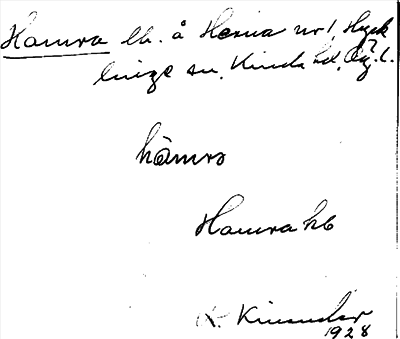 Hamra lh. å Hersa nr 1, Hyck
linge sn, Kinda hd, Ög. l.
hàmra
Hamra hb
K. Kinander
1928